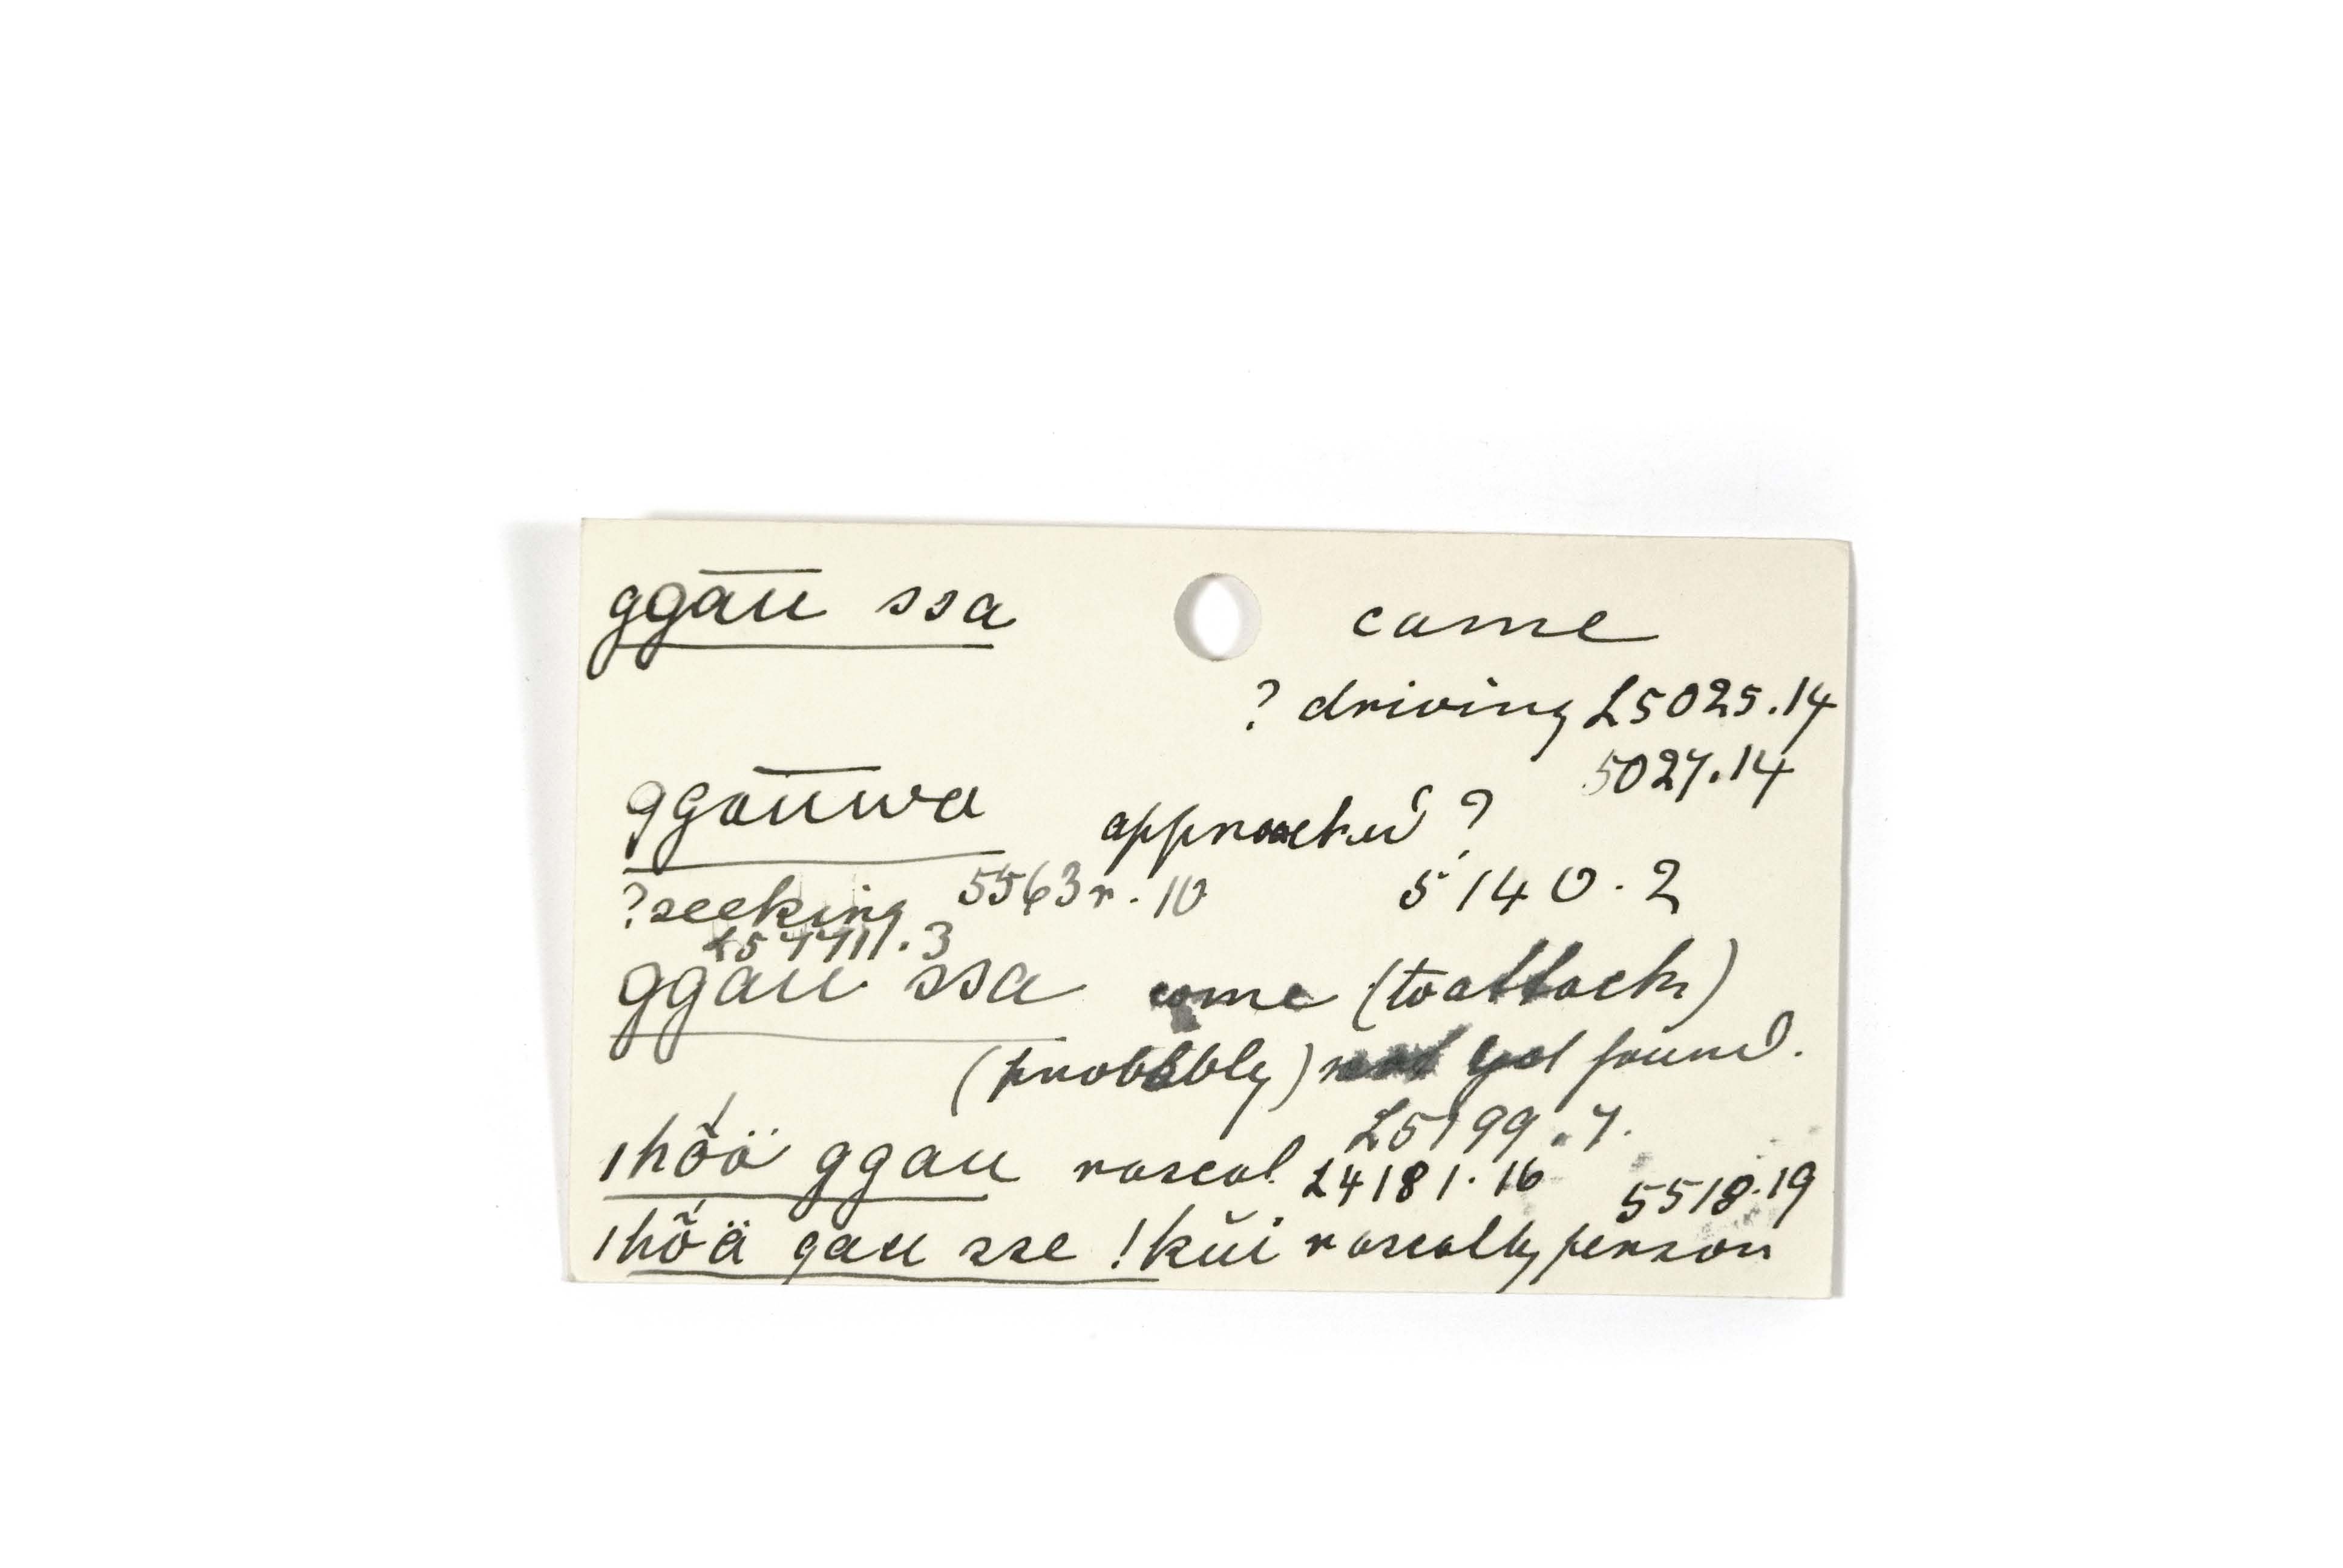 ggau̅ ssa came
? driving L5025.14
5027.14
ggau̅wa approached ?
?seeking 5563r.10 5140.2
L5771'.3
ggau ssa come (to attack)
(probably) not yet found.
L5199.7.
ıhṍä ggau rascal L4181.16 5518.19
ıhṍä gau sse !kŭi rascally person